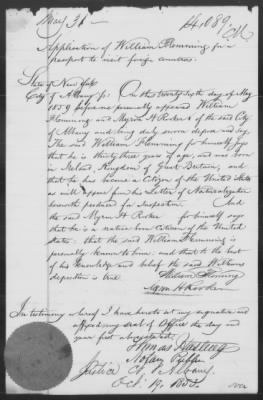 May 31 14,089
Application of William Flemming for a
passport to visit foreign countries.
State of New York
City of Albany ss. On this twenty sixth day of May
1859 before me personally appeared William
Flemming and Myron H Rooker of the said City
of Albany and being duly sworn depose and say
The said William Flemming for himself says
that he is thirty three years of age, and was born
in Ireland, Kingdom of Great Britain, and
that he has become a citizen of the United States
as will appear from his Letter of Naturalization
herewith produced for inspection. And
the said Myron H Rooker for himself says
that he is a native born citizen of the United
States: that the said William Flemming is
personally known to him and that to the best
of his knowledge and belief the said Williams
deposition is true.
William Fleming
Myron H Rooker
In testimony whereof I have hereto set my signature and
affixed my seal of Office the day and
year first above stated.
Thomas
Notary Public
Justice Albany
Oct 19, 1855.
over